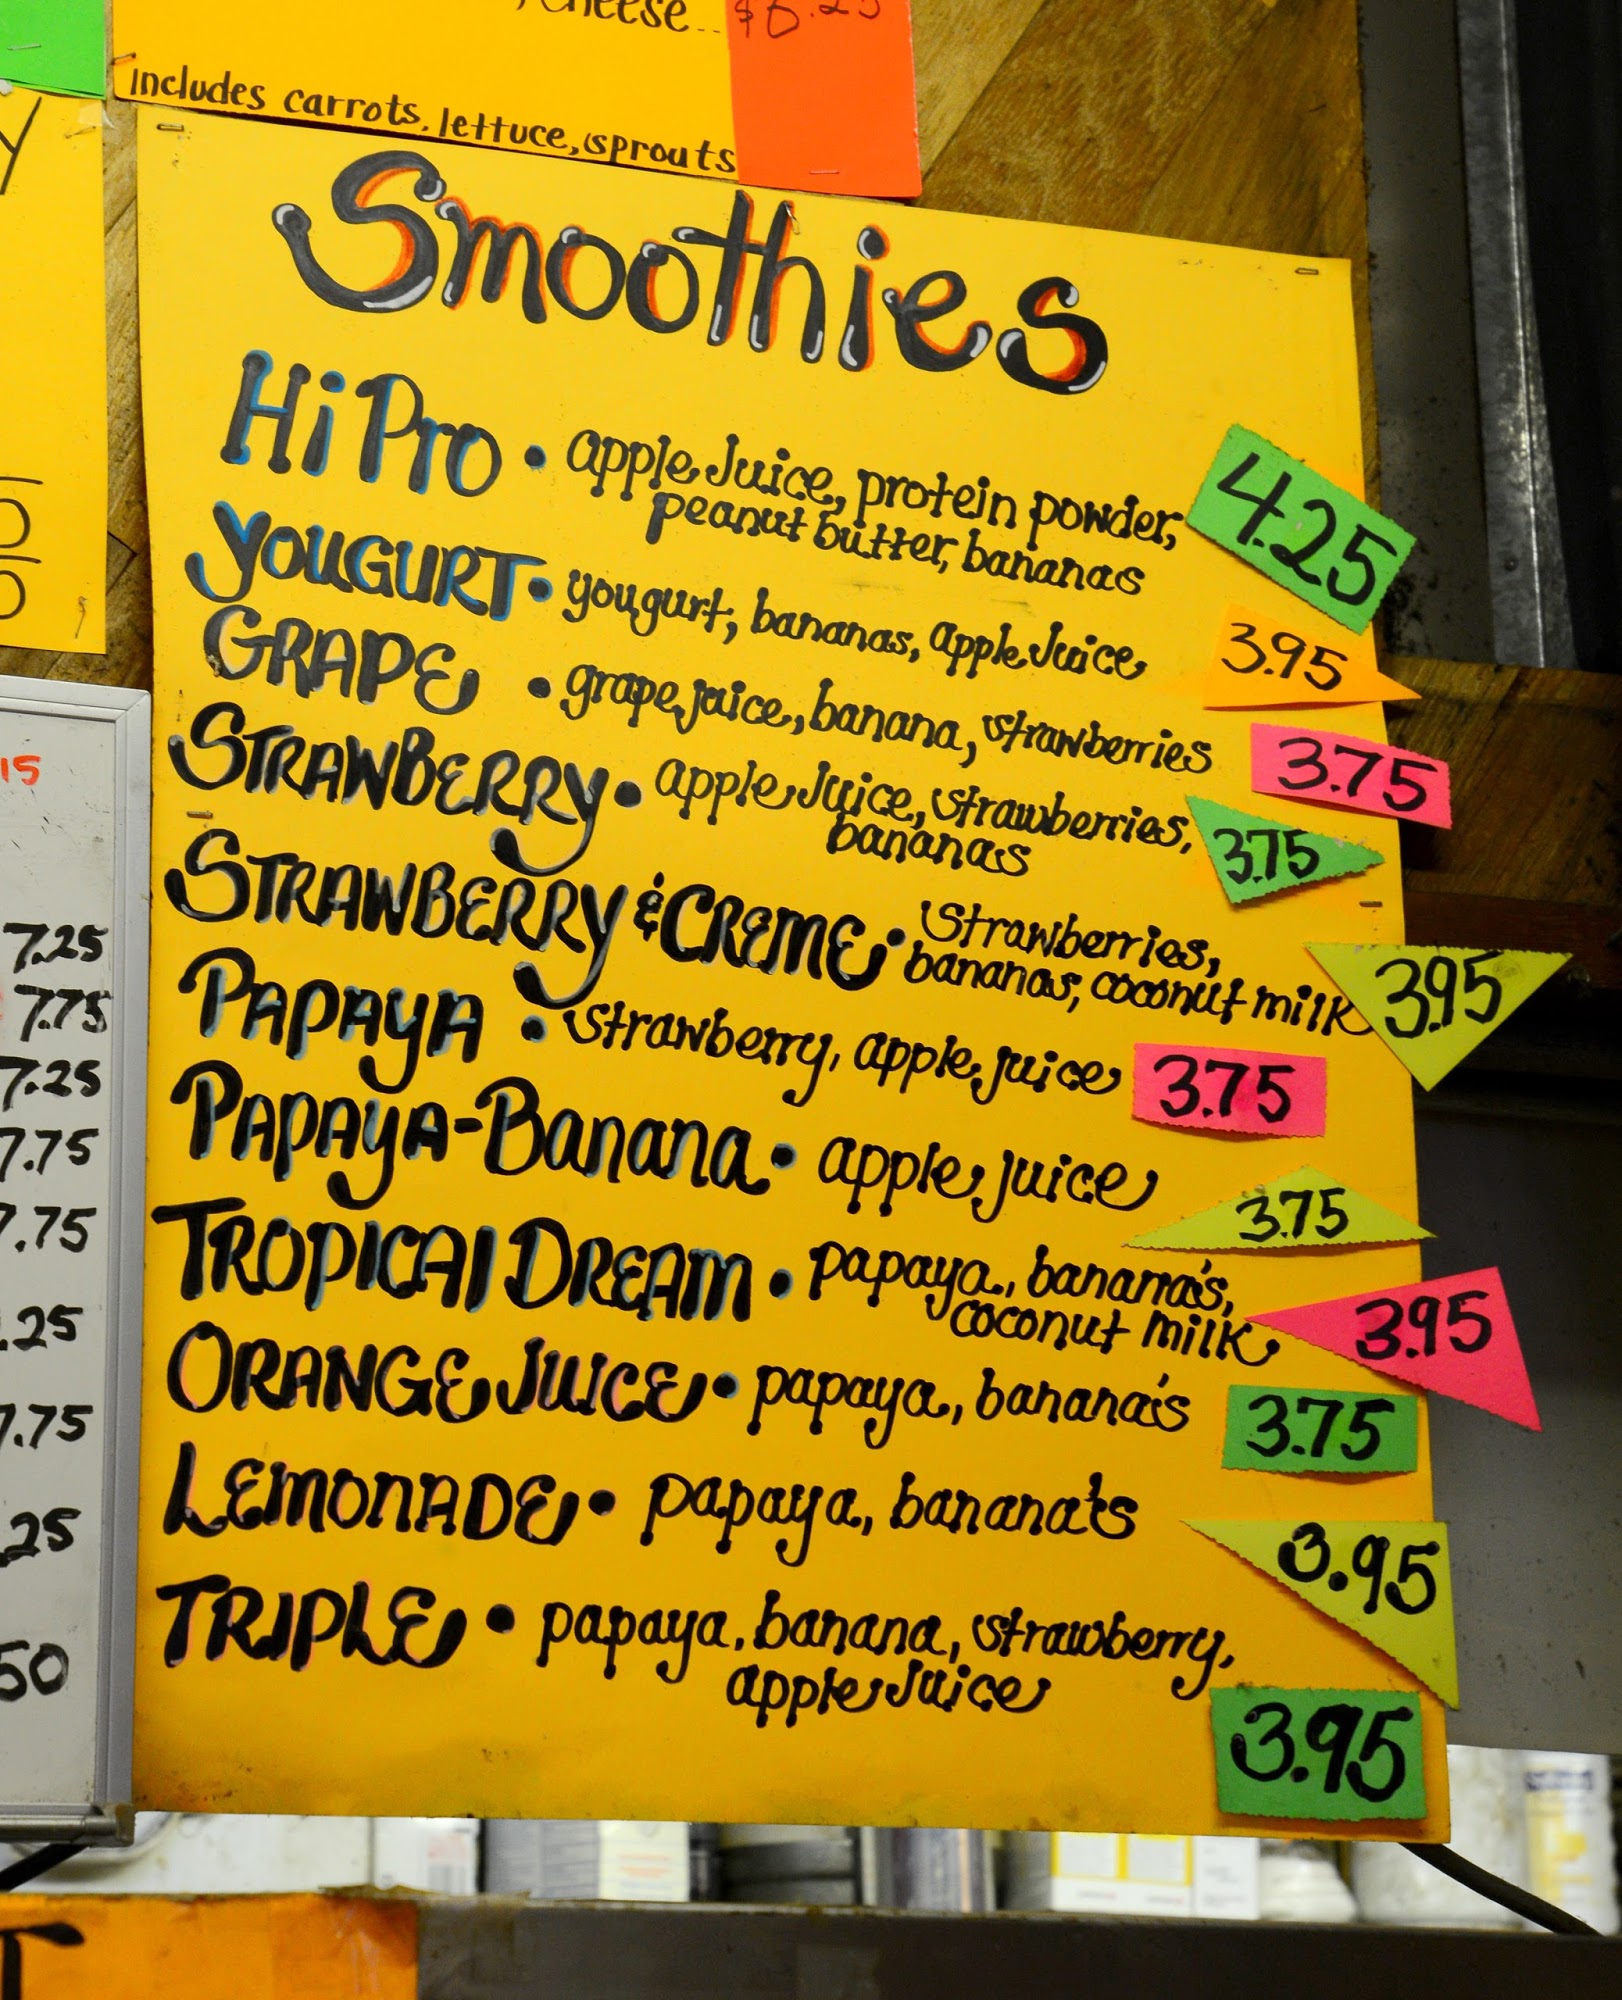 cheese.. $6.25
includes carrots, lettuce, sprouts
Smoothies
Hi Pro • apple juice, protein powder, 4.25
peanut butter, bananas
YOUGURT • yougurt, bananas, apple juice 3.95
GRAPE • grape juice, banana, strawberries 3.75
STRAWBERRY • apple juice, strawberries, 3.75
bananas
STRAWBERRY & CREME • strawberries, 3.95
bananas, coconut milk
PAPAYA • strawberry, apple juice 3.75
PAPAYA-BANANA • apple juice 3.75
TROPICAL DREAM • papaya, banana's, 3.95
coconut milk
ORANGE JUICE • papaya, banana's 3.75
LEMONADE • papaya, banana's 3.95
TRIPLE • papaya, banana, strawberry,
apple juice 3.95
15
7.25
7.75
7.25
7.75
7.75
.25
7.75
25
50